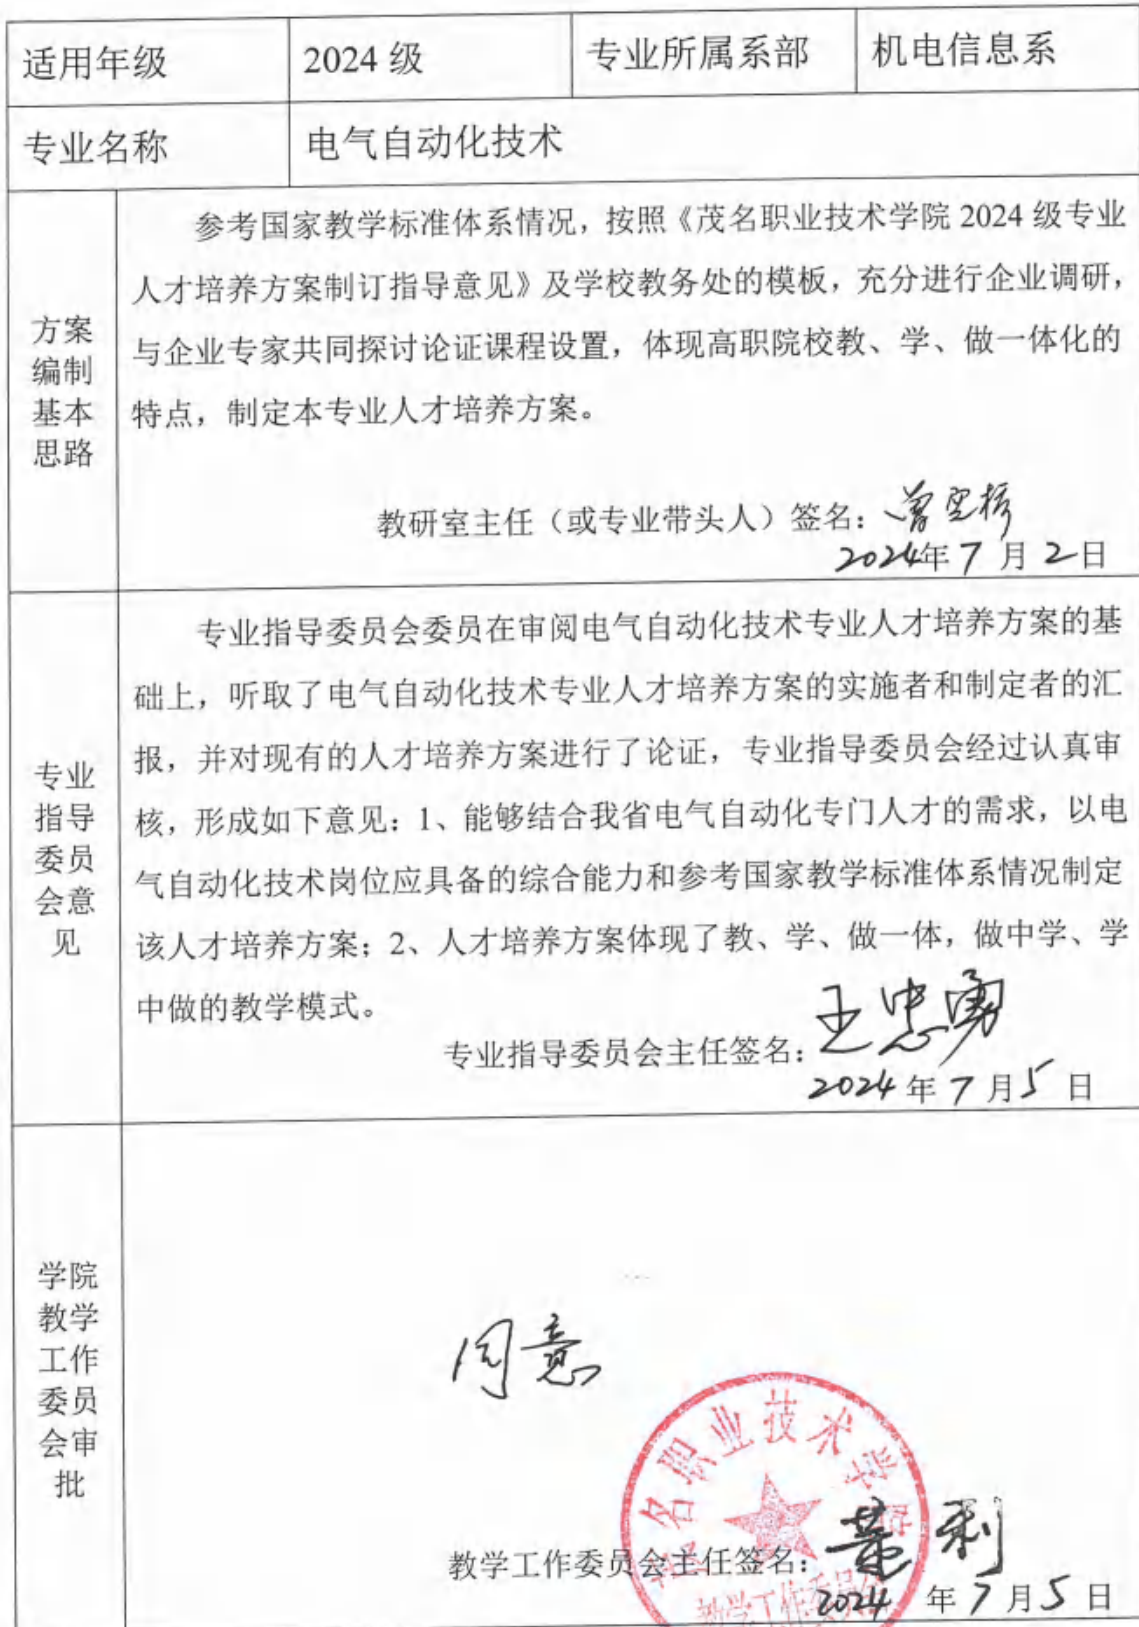 适用年级 2024 级 专业所属系部 机电信息系
专业名称 电气自动化技术
方案
编制
基本
思路
参考国家教学标准体系情况，按照《茂名职业技术学院 2024 级专业
人才培养方案制订指导意见》及学校教务处的模板，充分进行企业调研，
与企业专家共同探讨论证课程设置，体现高职院校教、学、做一体化的
特点，制定本专业人才培养方案。
教研室主任（或专业带头人）签名：
2024年 7 月 2 日
专业
指导
委员
会意
见
专业指导委员会委员在审阅电气自动化技术专业人才培养方案的基
础上，听取了电气自动化技术专业人才培养方案的实施者和制定者的汇
报，并对现有的人才培养方案进行了论证，专业指导委员会经过认真审
核，形成如下意见：1、能够结合我省电气自动化专门人才的需求，以电
气自动化技术岗位应具备的综合能力和参考国家教学标准体系情况制定
该人才培养方案；2、人才培养方案体现了教、学、做一体，做中学、学
中做的教学模式。
专业指导委员会主任签名：王忠勇
2024 年 7 月 5 日
学院
教学
工作
委员
会审
批
同意
茂名职业技术学院
教学工作委员会
教学工作委员会主任签名：
2024 年 7 月 5 日